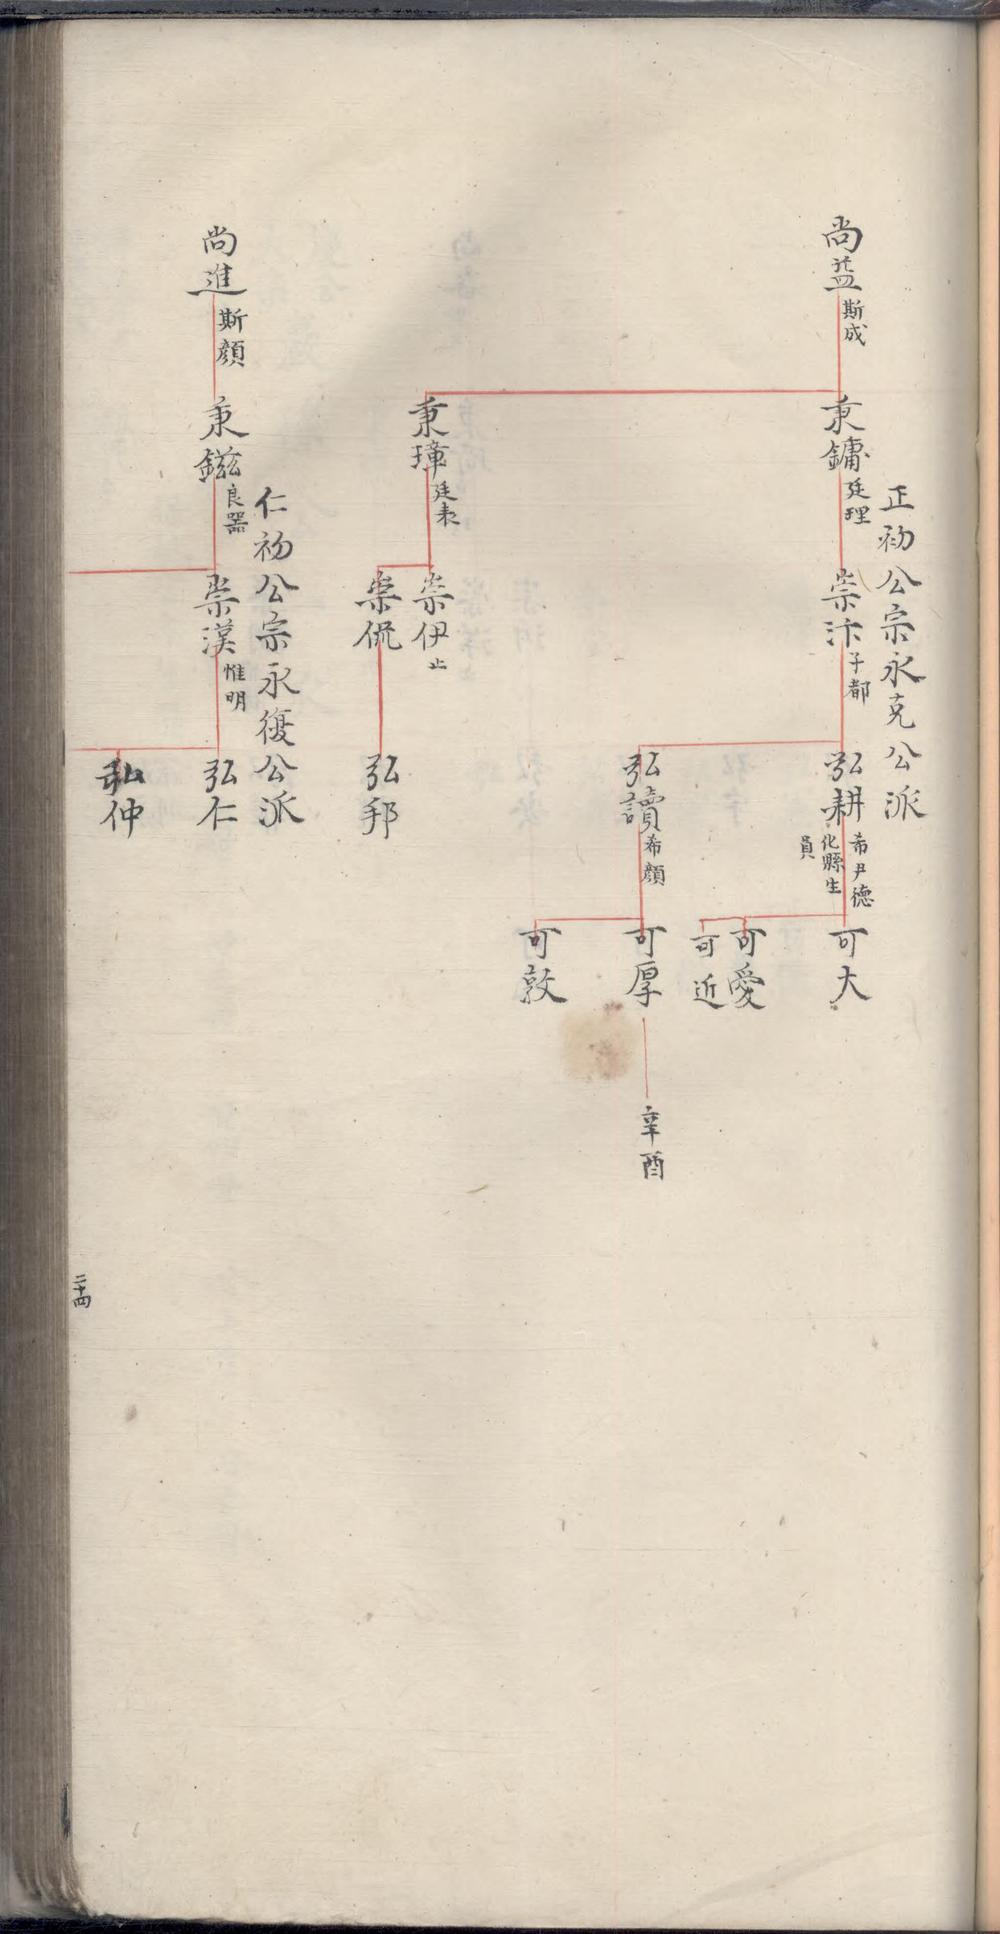 正初公宗永克公派
尚益 斯成
秉鏞 廷理
崇汴 子都
弘耕 希尹德化縣生員
可大
可愛
可近
弘讀 希顔
可厚
辛酉
可敦
秉璋 廷表
崇伊 止
崇侃
弘邦
仁初公宗永復公派
尚進 斯顔
秉鎡 良器
崇漢 惟明
弘仁
弘仲
二十四